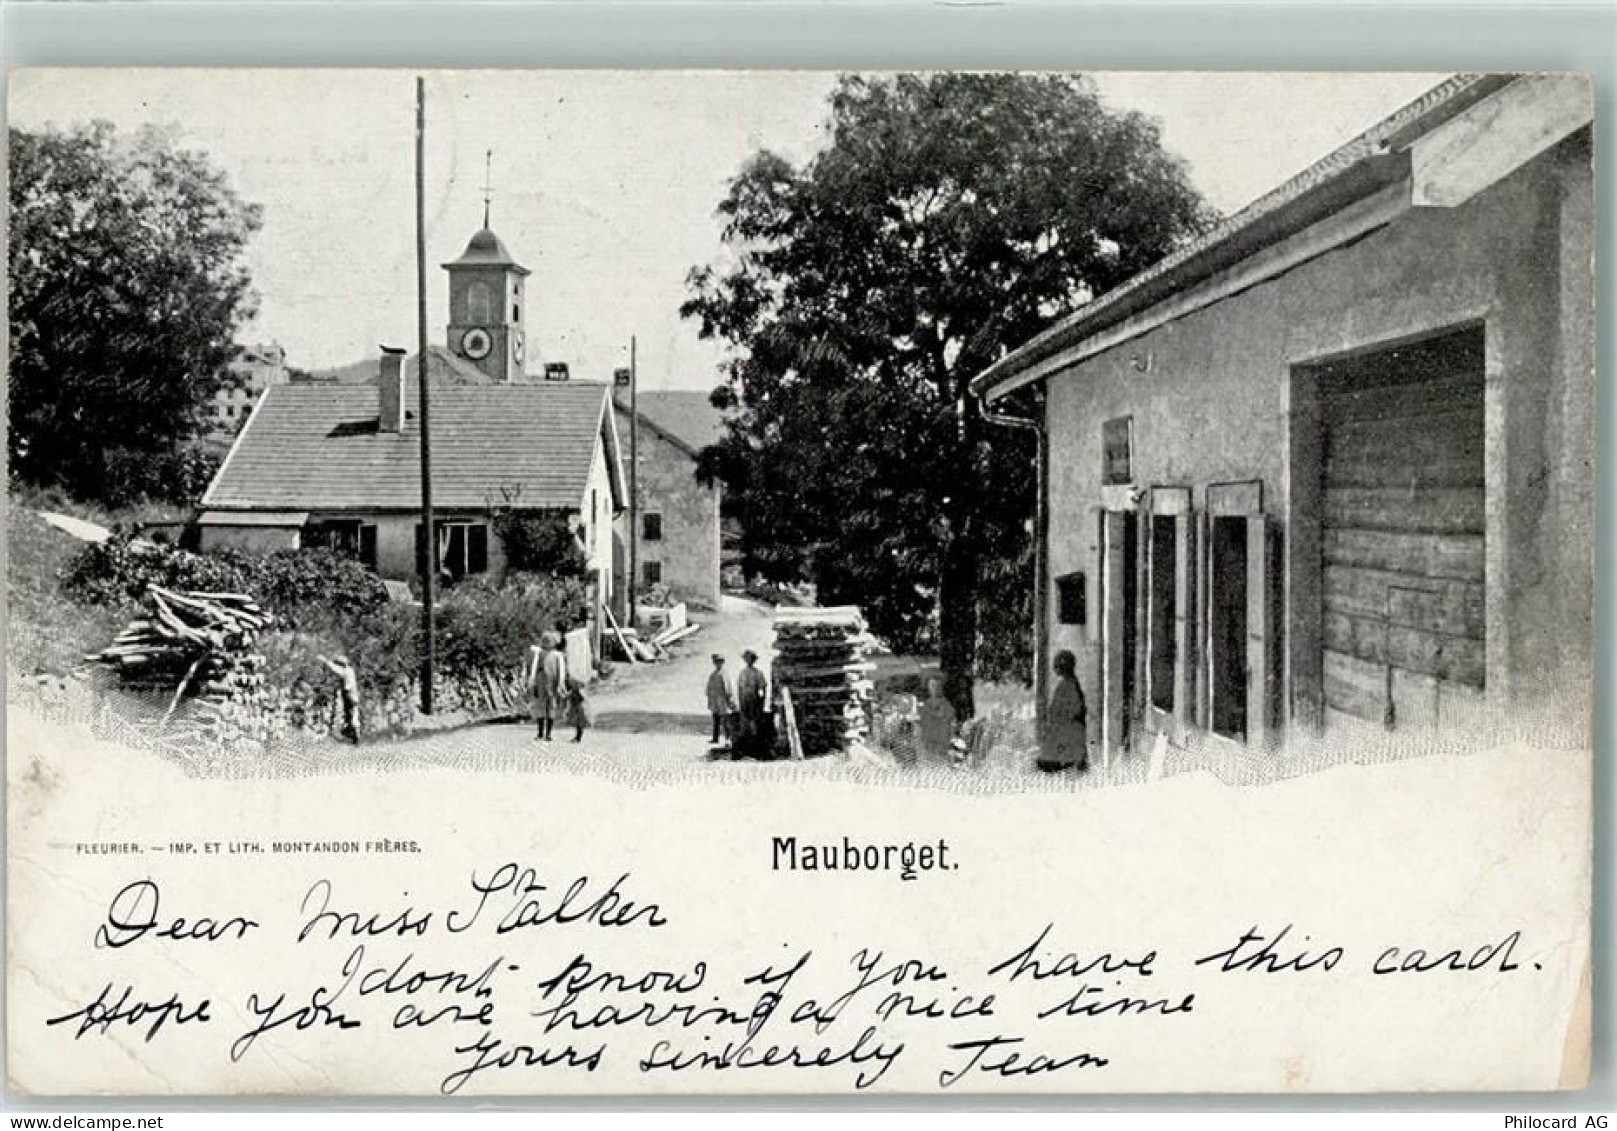 FLEURIER. — IMP. ET LITH. MONTANDON FRÈRES.
Mauborget.
Dear Miss Stalker
I dont know if you have this card.
Hope you are having a nice time
Yours sincerely Jean
www.delcampe.net
Philocard AG